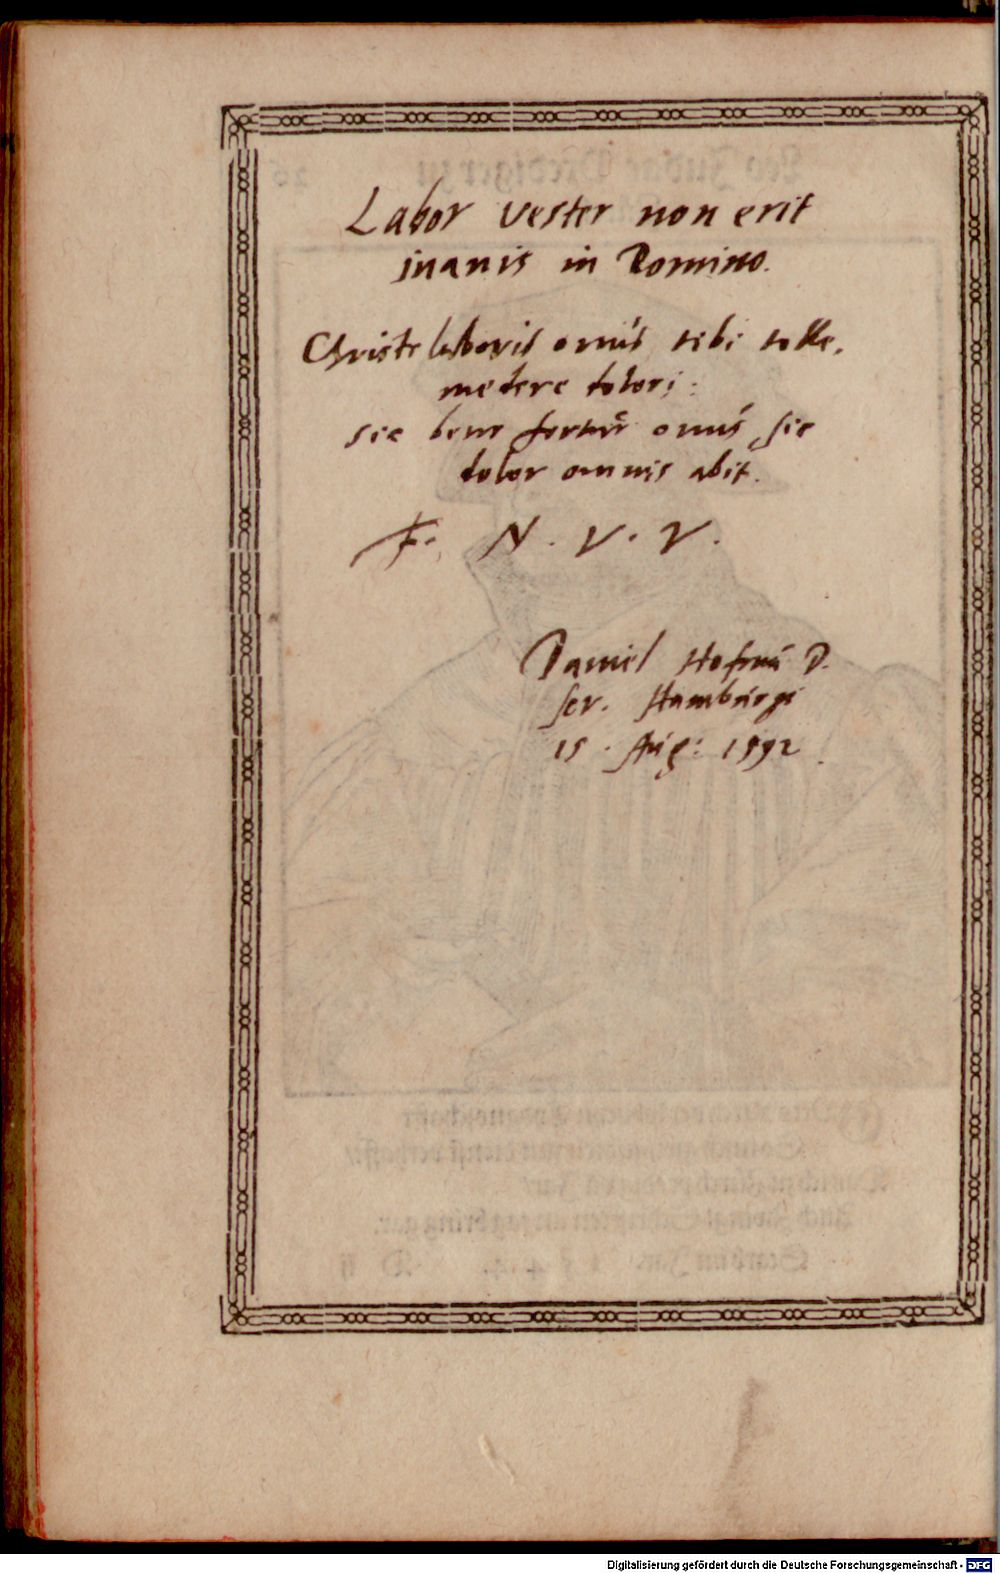 Labor vester non erit
inanis in Domino.
Christe laboris onus tibi tolle,
medere dolori:
sic bene fertur onus, sic
dolor omnis abit.
N. V. V.
Daniel Hofmā D.
scr. Hamburgi
15. Aug: 1592.
Digitalisierung gefördert durch die Deutsche Forschungsgemeinschaft - DFG